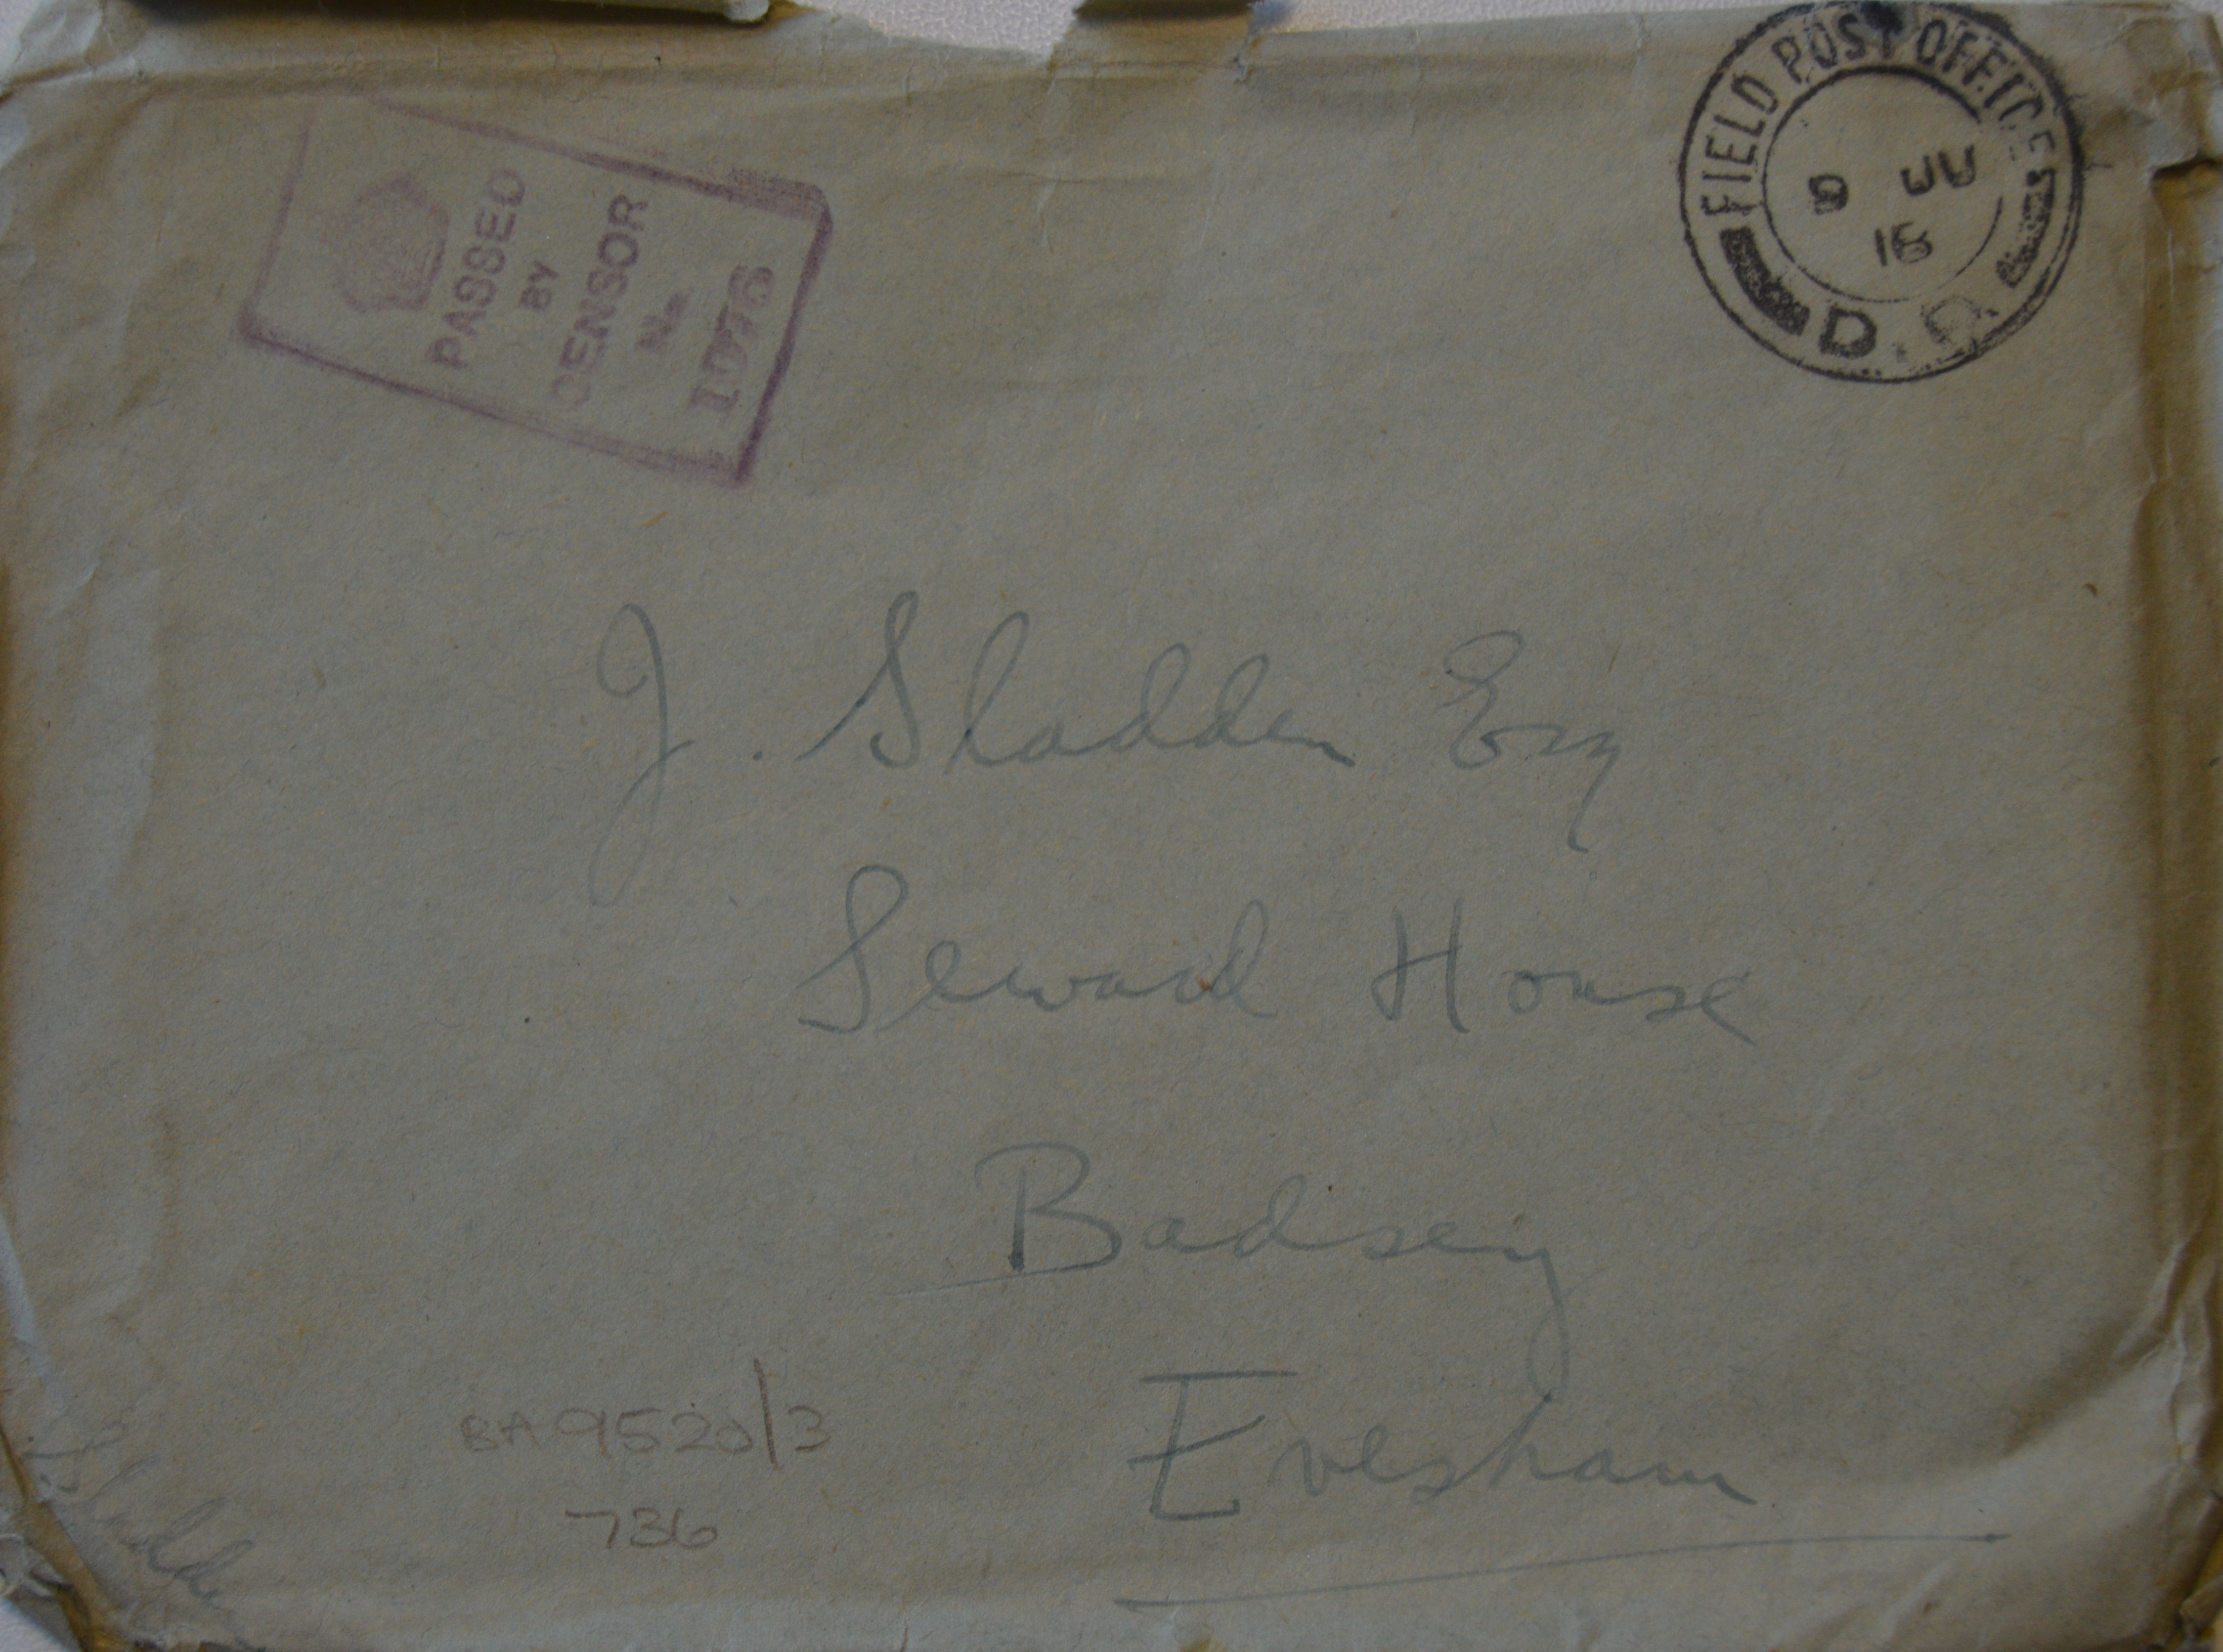 PASSED
BY
CENSOR
No.
1076
FIELD POST OFFICE
9 JU
16
D.
J. Sladden Esq
Seward House
Badsey
Evesham
BA9520/3
736
Sladden